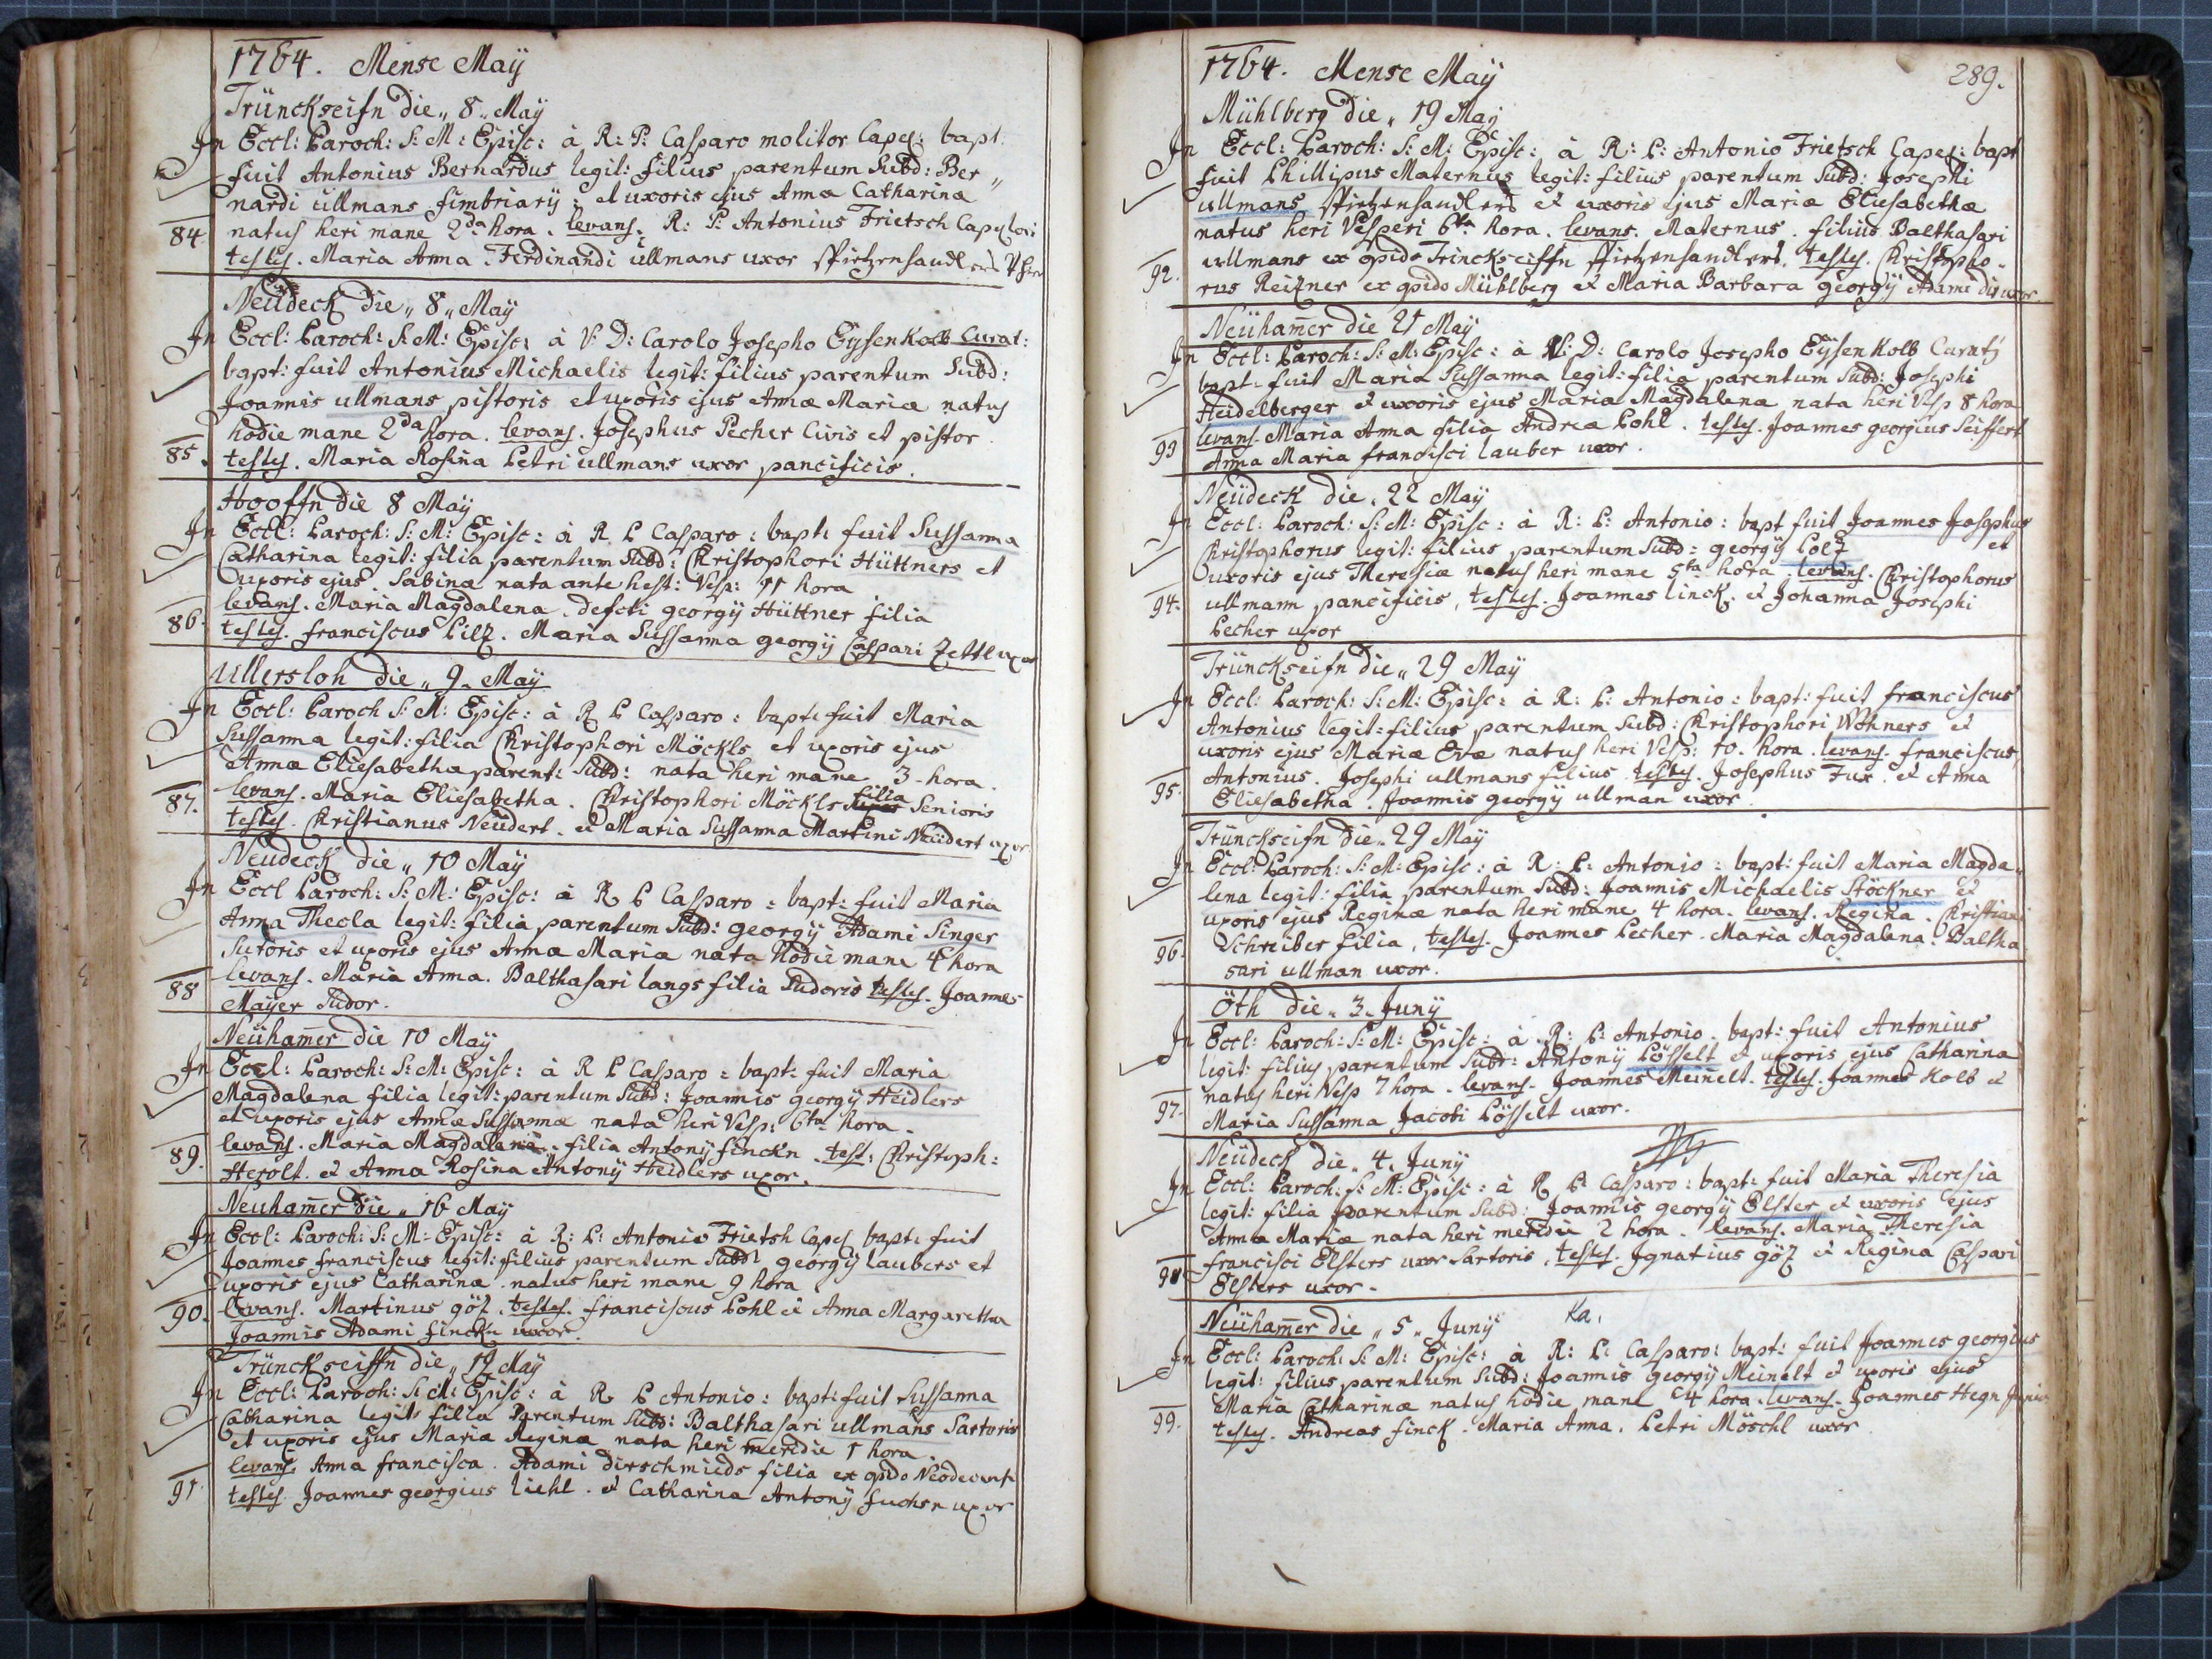 1764. Mense Maÿ
Trünckseifn die „ 8 „ Maÿ
In Eccl: Paroch: S: M: Episc: à R: P: Casparo molitor Capel: bapt
fuit Antonius Bernardus legit: filius parentum Subd: Ber „
nardi ullmans fimbriarÿ : et uxoris ejus Annæ Catharinæ
84 natus heri mane 2da hora . levans. R: P: Antonius Frietsch
testes. Maria Anna . Ferdinandi ullmans uxor
Neüdeck die „ 8 „ Maÿ
In Eccl: Paroch: S: M: Episc: à V: D: Carolo Josepho Eysenkolb Curat:
bapt: fuit Antonius Michaelis legit: filius parentum Subd:
Joannis ullmans pistoris et uxoris ejus Annæ Mariæ natus
hodie mane 2da hora . levans. Josephus Pecher Civis et pistor
85. testes. Maria Rosina Petri ullmans uxor panificis .
Hooffn die 8 Maÿ
In Eccl: Paroch: S: M: Episc: à R P Casparo : bapt: fuit Sussanna
Catharina legit: filia parentum Subd: Christophori Hüttners et
uxoris ejus Sabinæ nata ante hest: Vesp: 11 hora
levans. Maria Magdalena . defcti georgÿ Hüttner filia
86. testes. franciscus Pilz . Maria Sussanna georgÿ Caspari Zettl uxor
Ullersloh die „ 9 „ Maÿ
In Eccl: Paroch S: M: Episc: à R P Casparo : bapt: fuit Maria
Sussanna legit: filia Christophori Möckls et uxoris ejus
Annæ Eliesabethæ parent: Subd: nata heri mane 3 - hora .
levans. Maria Eliesabetha . Christophori Möckls filia Senioris
87. testes. Christianus Neüdert . et Maria Sussanna Martini Neüdert uxor
Neudeck die „ 10 Maÿ
In Eccl Paroch: S: M: Episc: à R P Casparo : bapt: fuit Maria
Anna Thecla legit: filia parentum Subd: georgÿ Adami Singer
Sutoris et uxoris ejus Annæ Mariæ nata hodie mane 4 hora
88 levans. Maria Anna . Balthasari langs filia Sudoris testes. Joannes
Maÿer Sudor.
Neühamer die 10 Maÿ
In Eccl: Paroch: S: M: Episc: à R P Casparo : bapt: fuit Maria
Magdalena filia legit: parentum Subd: Joannis georgÿ Heidlers
et uxoris ejus Annæ Sussannæ nata heri Vesp: 6ta hora .
89. levans. Maria Magdalena . filia Antonÿ finckn . test: Christoph:
Herolt . et Anna Rosina Antonÿ Heidlers uxor .
Neuhamer die „ 16 Maÿ
In Eccl: Paroch: S: M: Episc: à R: P: Antonio Frietsh Capel bapt: fuit
Joannes franciscus legit: filius parentum Subd georgÿ laubers et
uxoris ejus Catharinæ . natus heri mane 9 hora
90. levans. Martinus göz . testes. franciscus Pohl et Anna Margaretha
Joannis Adami finckn uxor.
Trünckseiffn die „ 19 Maÿ
In Eccl: Paroch: S: M: Episc: à R P Antonio : bapt: fuit Sussanna
Catharina legit: filia Parentum Subd: Balthasari ullmans Sartoris
et uxoris ejus Mariæ Reginæ nata heri meridie 1 hora
levans. Anna francisca . Adami dirschmieds filia ex opido
91. testes. Joannes georgius liehl . et Catharina Antonÿ fuchsn uxor
1764. Mense Maÿ 289.
Mühlberg die „ 19 Maÿ
In Eccl: Paroch: S: M: Episc: à R: P: Antonio Frietsch Capel: bapt
fuit Phillipus Maternus legit: filius parentum Subd: Josephi
ullmans spitzenhandlers et uxoris ejus Mariæ Eliesabethæ
natus heri Vesperi 6ta hora . levans. Maternus . filius Balthasari
92. ullmans ex opido Trinckseiffn spitzenhandlers. testes. Christopho-
rus Reizner ex opido Mühlberg et Maria Barbara georgÿ Adami uxor
Neühamer die 21 Maÿ
In Eccl: Paroch: S: M: Episc: à V: D: Carolo Josepho Eÿsenkolb
bapt: fuit Maria Sussanna legit: filia parentum Subd: Josephi
Heidelberger et uxoris ejus Mariæ Magdalenæ nata heri Vesp 8 hora
93 levans. Maria Anna filia Andrea Pohl . testes. Joannes georgius Seiffert
Anna Maria francisci lauber uxor .
Neüdeck die . 22 Maÿ
In Eccl: Paroch: S: M: Episc: à R: P: Antonio : bapt fuit Joannes Josephus
Christophorus legit: filius parentum Subd: georgÿ Polz et
uxoris ejus Theresiæ natus heri mane 5ta hora . levans. Christophorus
94. ullmann panificis, testes. Joannes linck . et Johanna Josephi
Pecher uxor
Trünckseifn die „ 29 Maÿ
In Eccl: Paroch: S: M: Episc: à R: P: Antonio : bapt: fuit franciscus
Antonius legit: filius parentum Subd: Christophori Wöhners et
uxoris ejus Mariæ Evæ natus heri Vesp: 10. hora . levans. franciscus
Antonius . Josephi ullmans filius testes. Josephus Fux . et Anna
95. Eliesabetha . Joannis georgÿ ullman uxor
Trünckseifn die „ 29 Maÿ
In Eccl: Paroch: S: M: Episc: à R: P: Antonio : bapt: fuit Maria Magda„
lena legit: filia parentum Subd: Joannis Michaelis Stöckner et
uxoris ejus Reginæ nata heri mane 4 hora . levans. Regina . Christiani
96. Schreiber filia , testes. Joannes Pecher . Maria Magdalena . Baltha
sari ullman uxor .
Öth die „ 3 „ Junÿ
In Eccl: Paroch: S: M: Episc: à R: P: Antonio . bapt: fuit Antonius
legit: filius parentum Subd: Antonÿ Pösselt et uxoris ejus Catharina
natus heri Vesp 7 hora . levans. Joannes Meinelt . testes. Joannes Kolb et
97. Maria Sussanna Jacobi Pösselt uxor.
Neüdeck die „ 4 . Junÿ
In Eccl: Paroch: S: M: Episc: à R P: Casparo : bapt: fuit Maria Theresia
legit: filia parentum Subd: Joannis georgÿ Elster et uxoris ejus
Annæ Mariæ nata heri meridie 2 hora . levans. Maria Theresia
98 francisci Elsters uxor Sartoris . testes. Ignatius göz et Regina Caspari
Elsters uxor -
Ka,
Neühamer die „ 5 „ Junÿ
In Eccl: Paroch: S: M: Episc: à R: P: Casparo: bapt: fuit Joannes georgius
legit: filius parentum Subd: Joannis georgÿ Meinelt et uxoris ejus
Maria Catharinæ natus hodie mane 4 hora . levans. Joannes Hegn
99. testes. Andreas finck . Maria Anna . Petri Möschl uxor